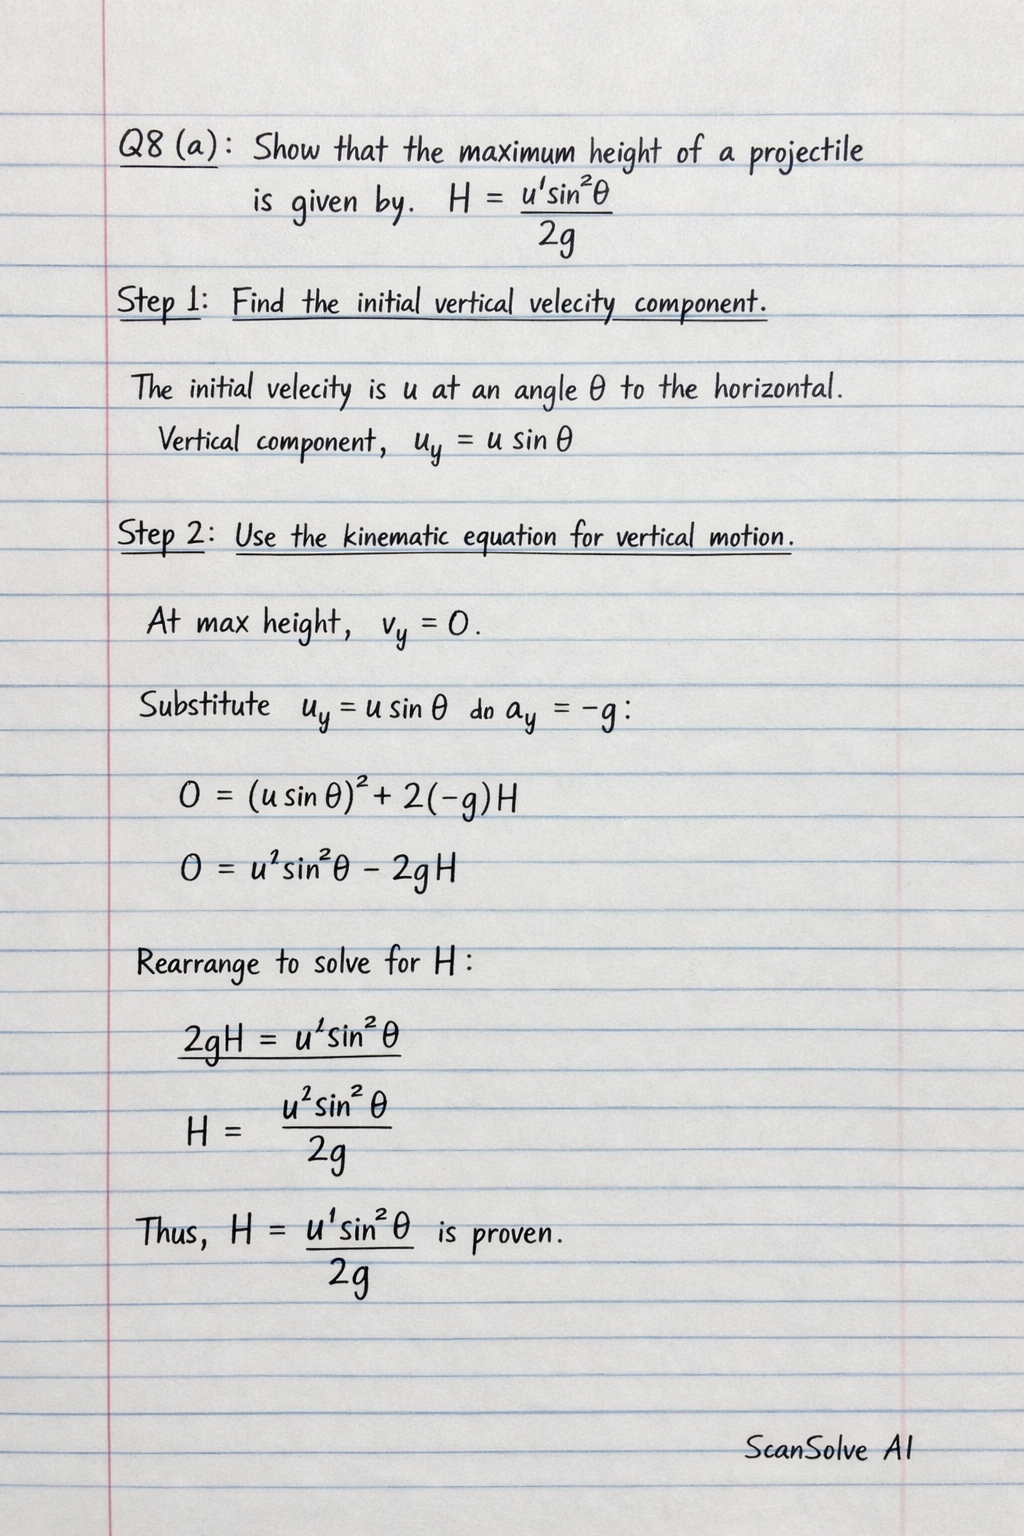 Q8 (a): Show that the maximum height of a projectile
is given by. H = u'sin²θ / 2g
Step 1: Find the initial vertical velecity component.
The initial velecity is u at an angle θ to the horizontal.
Vertical component, u_y = u sin θ
Step 2: Use the kinematic equation for vertical motion.
At max height, v_y = 0.
Substitute u_y = u sin θ do a_y = -g:
0 = (u sin θ)² + 2(-g)H
0 = u²sin²θ - 2gH
Rearrange to solve for H:
2gH = u'sin²θ
H = u²sin²θ / 2g
Thus, H = u'sin²θ / 2g is proven.
ScanSolve AI